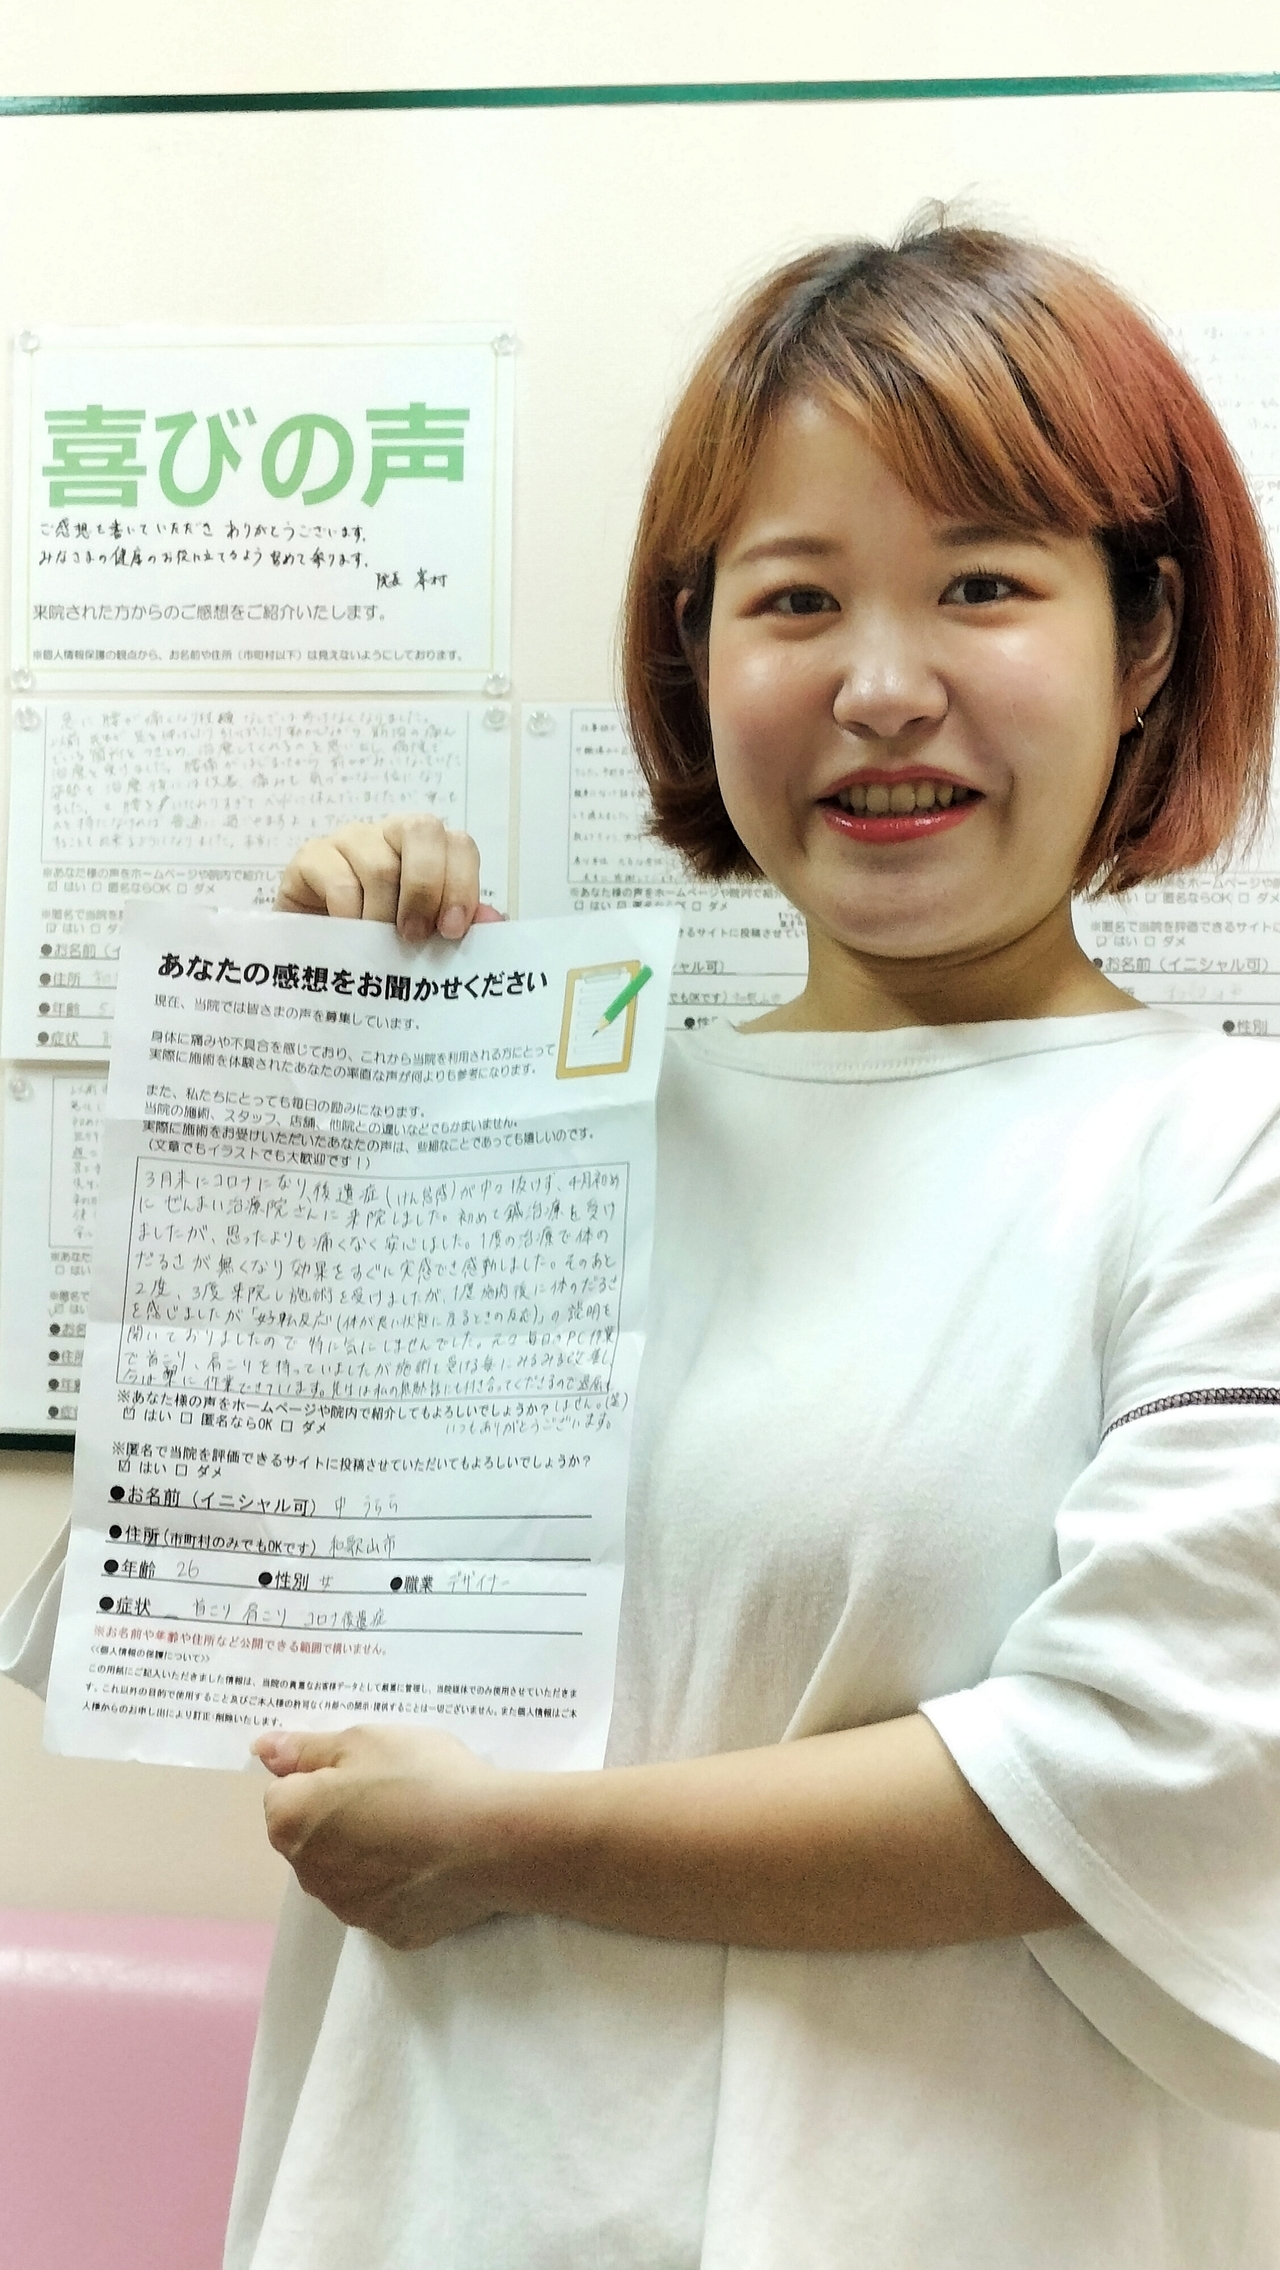 喜びの声
ご感想を書いていただき ありがとうございます。
みなさまの健康のお役に立てるよう 努めて参ります。
院長 峯村
来院された方からのご感想をご紹介いたします。
※個人情報保護の観点から、お名前や住所（市町村以下）は見えないようにしております。
※あなた様の声をホームページや院内で紹介して
☑ はい □ 匿名ならOK □ ダメ
※匿名で当院を評価
●お名前（イ
●住所
●年齢
●症状
※あなた様の声をホームページや院内で紹介
□ はい ☑ 匿名ならOK □ ダメ
きるサイトに投稿させてい
●性
声をホームページや
□ 匿名ならOK □ ダメ
※匿名で当院を評価できるサイト
□ ダメ
●お名前（イニシャル可）
●性別
あなたの感想をお聞かせください
現在、当院では皆さまの声を募集しています。
身体に痛みや不具合を感じており、これから当院を利用される方にとって
実際に施術を体験されたあなたの率直な声が何よりも参考になります。
また、私たちにとっても毎日の励みになります。
当院の施術、スタッフ、店舗、他院との違いなどでもかまいません。
実際に施術をお受けいただいたあなたの声は、些細なことであっても嬉しいのです。
（文章でもイラストでも大歓迎です！）
3月末にコロナになり、後遺症（けん怠感）が中々抜けず、4月初め
に ぜんまい治療院さんに来院しました。初めて鍼治療を受け
ましたが、思ったよりも痛くなく安心しました。1度の治療で体の
だるさが無くなり効果をすぐに実感でき感動しました。そのあと
2度、3度来院し施術を受けましたが、1度施術後に体のだるさ
を感じましたが「好転反応（体が良い状態に戻るときの反応）」の説明を
聞いておりましたので特に気にしませんでした。元々毎日のPC作業
で首こり、肩こりを持っていましたが施術を受ける毎にみるみる改善し
今は楽に作業できています。先生は私の無駄話にも付き合ってくださるので退屈も
しません。（笑）
いつもありがとうございます。
※あなた様の声をホームページや院内で紹介してもよろしいでしょうか？
☑ はい □ 匿名ならOK □ ダメ
※匿名で当院を評価できるサイトに投稿させていただいてもよろしいでしょうか？
☑ はい □ ダメ
●お名前（イニシャル可） 中 うらら
●住所（市町村のみでもOKです） 和歌山市
●年齢 26 ●性別 女 ●職業 デザイナー
●症状 首こり 肩こり コロナ後遺症
※お名前や年齢や住所など公開できる範囲で構いません。
<<個人情報の保護について>>
この用紙にご記入いただきました情報は、当院の貴重なお客様データとして厳重に管理し、当院媒体でのみ使用させていただきま
す。これ以外の目的で使用すること及びご本人様の許可なく外部への開示・提供することは一切ございません。また個人情報はご本
人様からのお申し出により訂正・削除いたします。